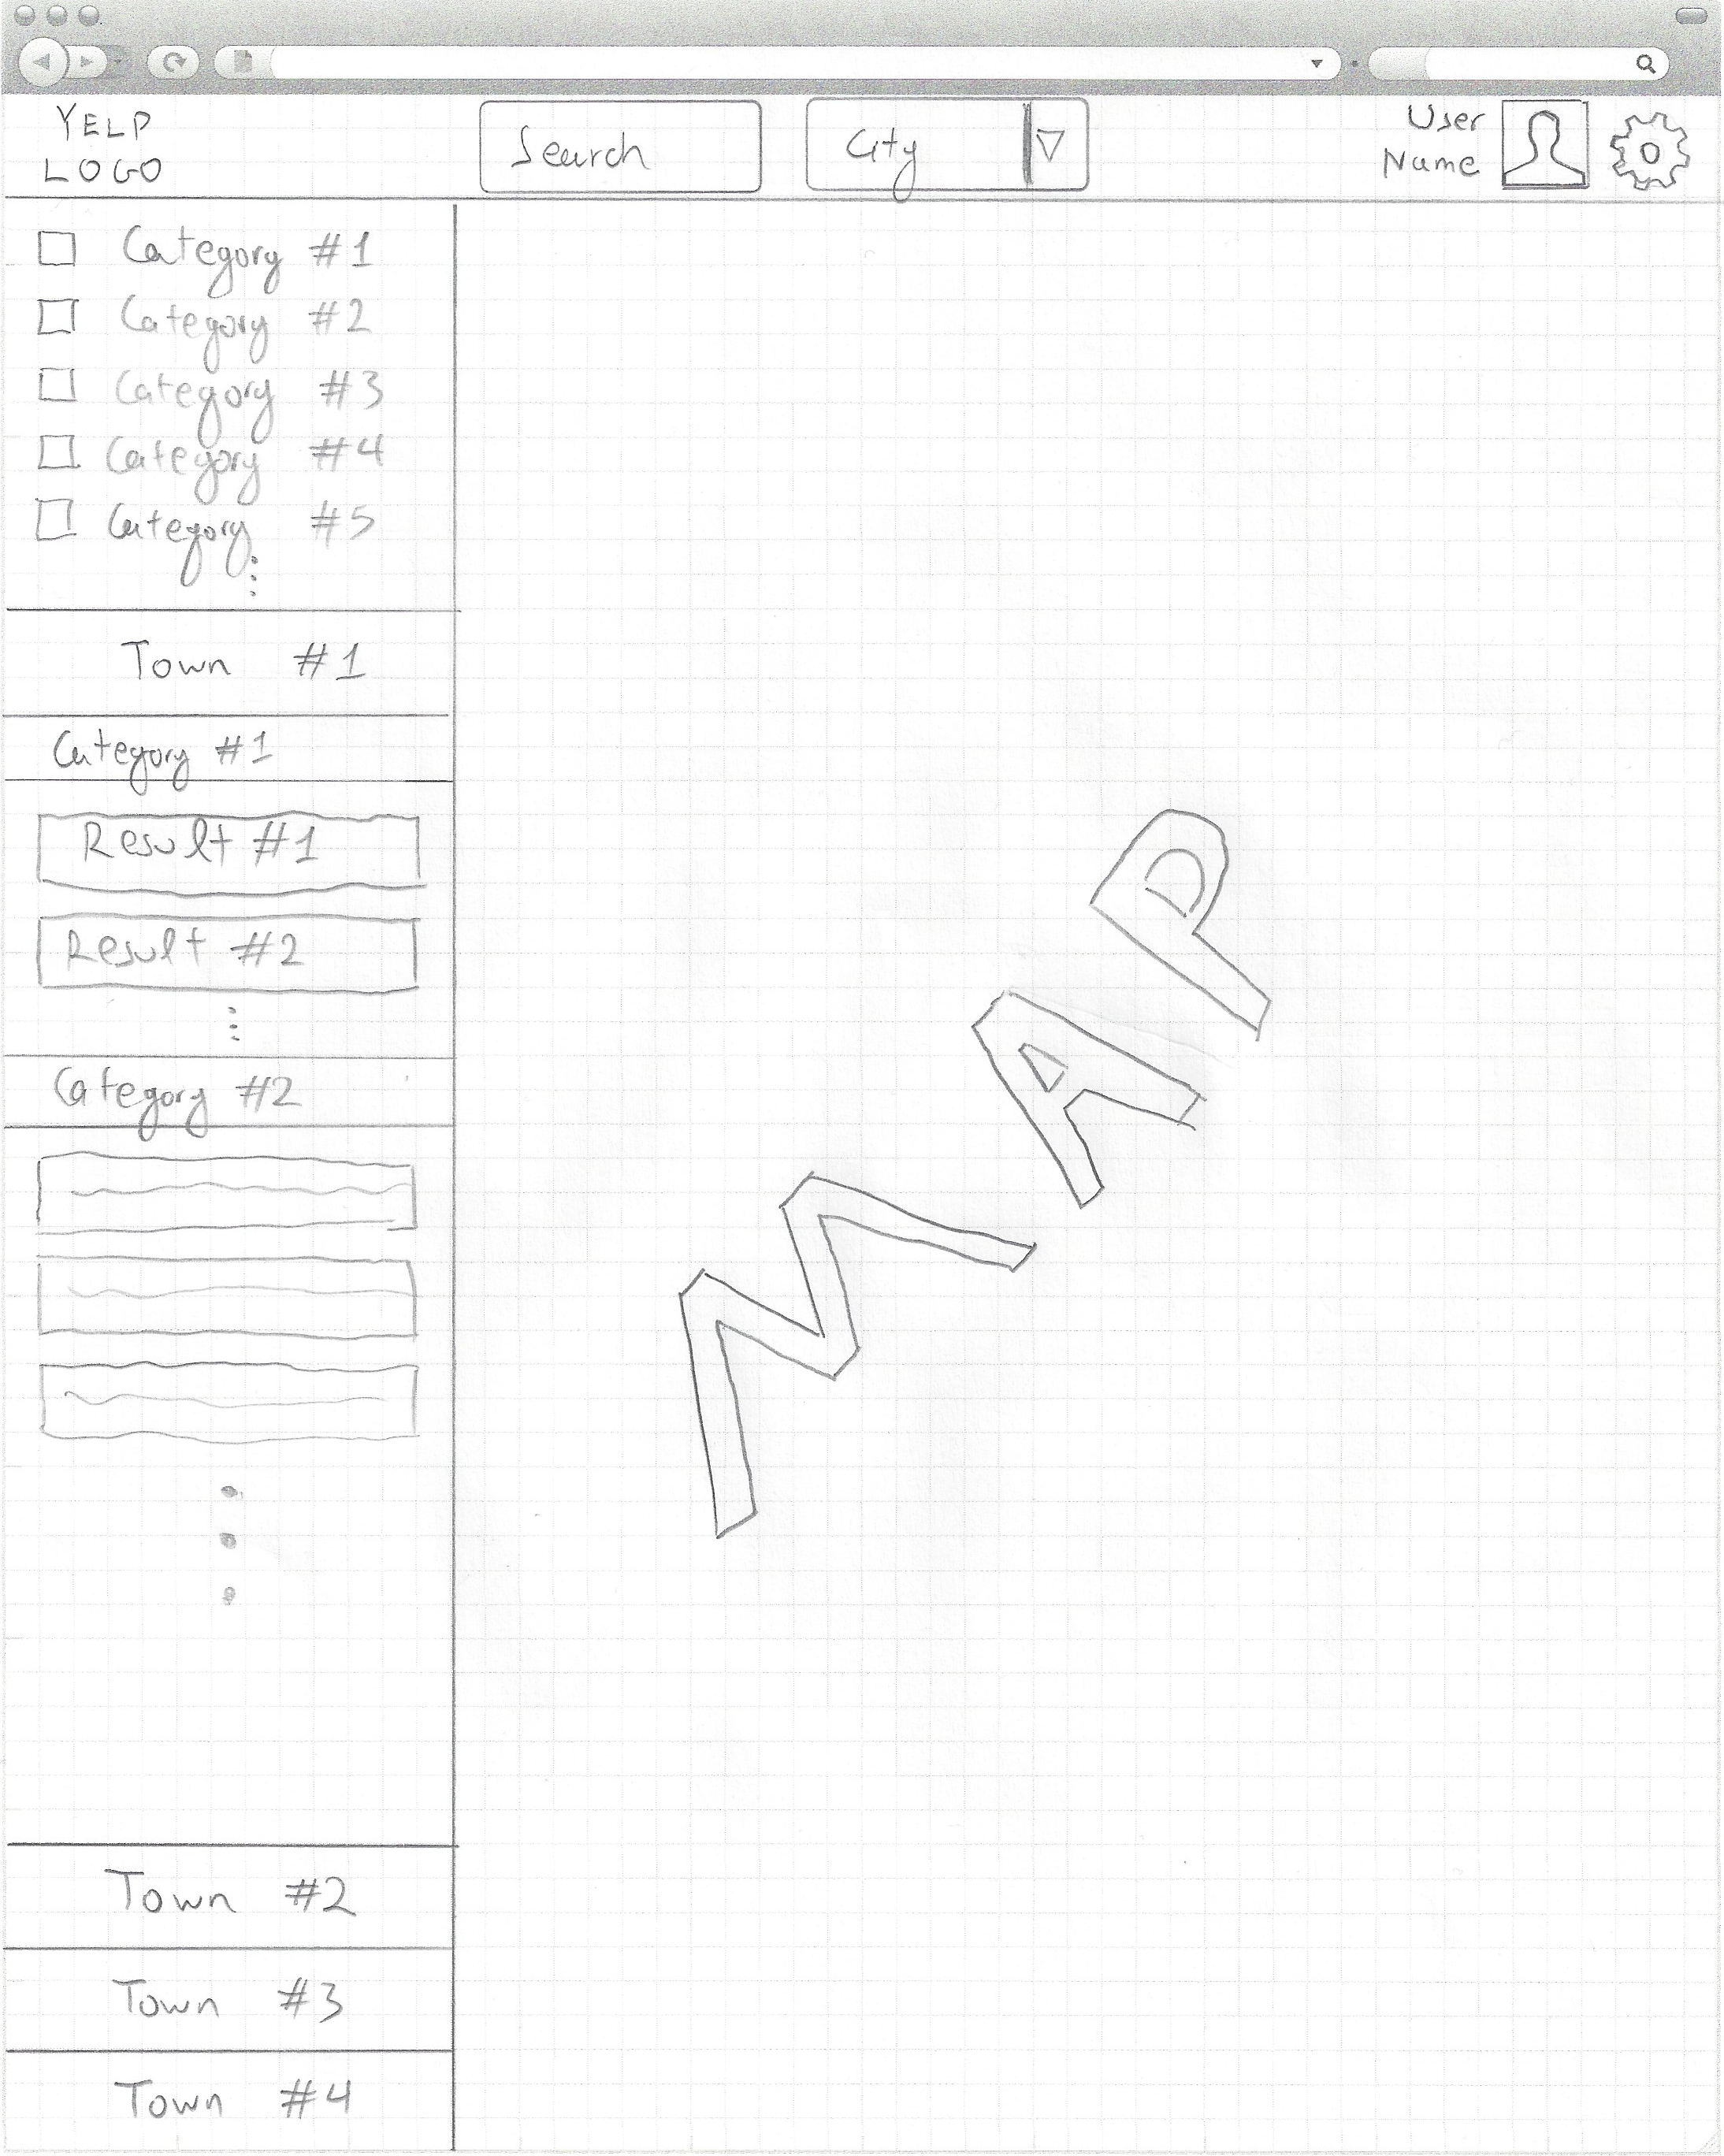 YELP
LOGO
Search
City
User
Name
Category #1
Category #2
Category #3
Category #4
Category #5
Town #1
Category #1
Result #1
Result #2
Category #2
MAP
Town #2
Town #3
Town #4